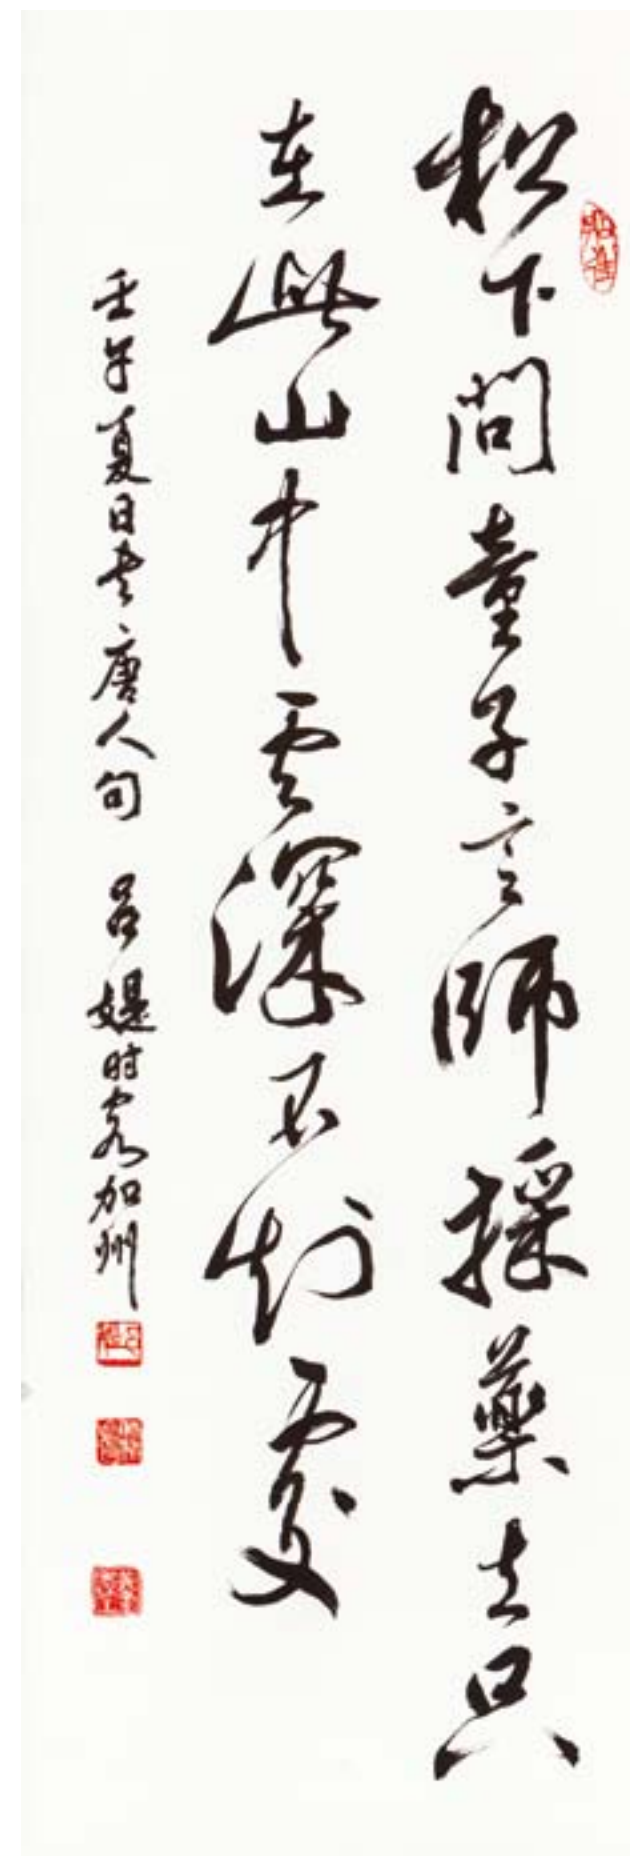 松下問童子言師採藥去只
在此山中雲深不知處
壬午夏日書唐人句 呂媞時客加州